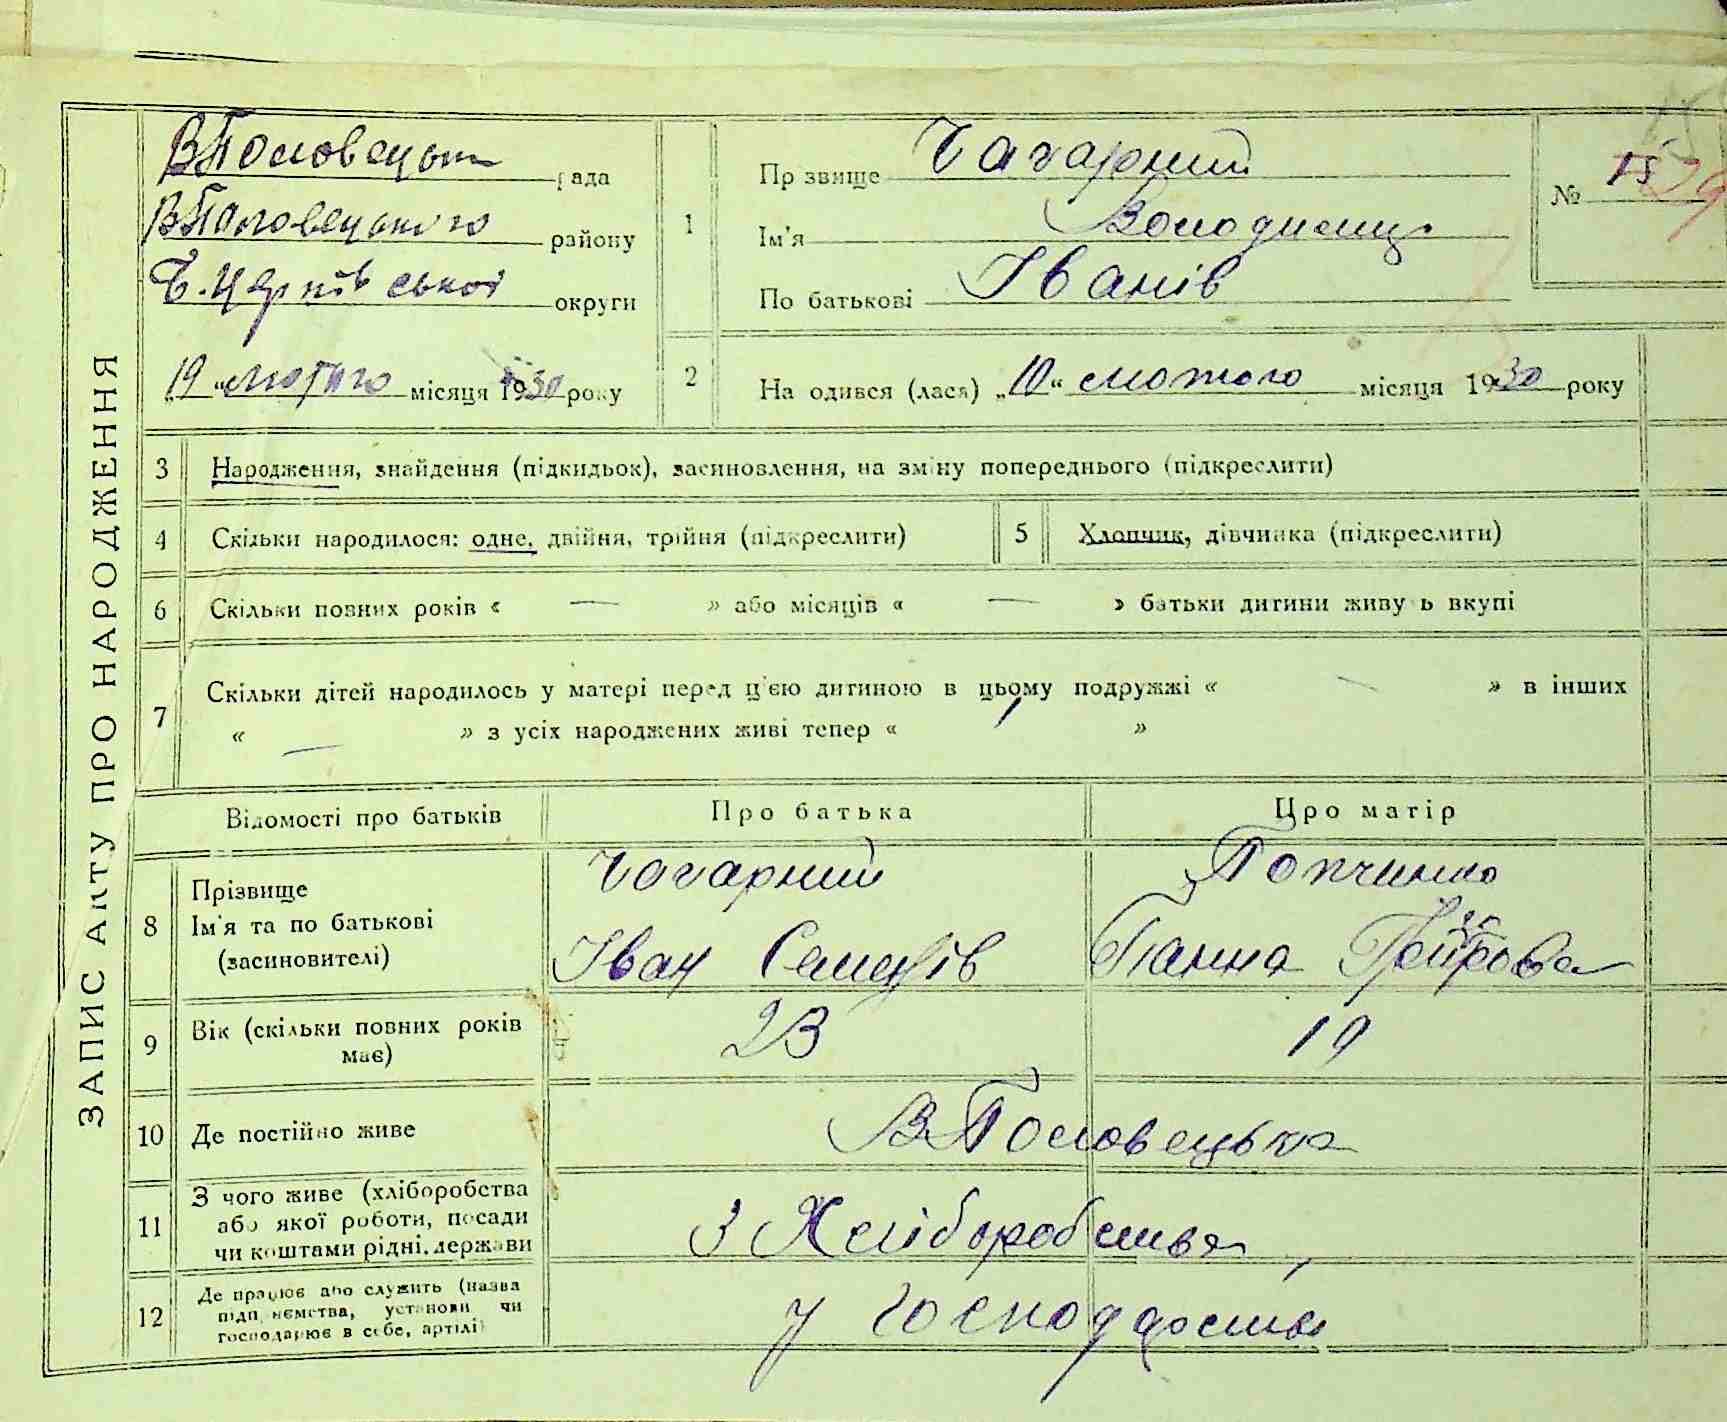 ЗАПИС АКТУ ПРО НАРОДЖЕННЯ
В Половецька рада
В Половецького району
Б. Церківської округи
"19" лютого місяця 1930 року
1 Прізвище Чагарний
Ім'я Володимир
По батькові Іванів
№ 15
2 Народився (лася) "10" лютого місяця 1930 року
3 Народження, знайдення (підкидьок), засиновлення, на зміну попереднього (підкреслити)
4 Скільки народилося: одне, двійня, трійня (підкреслити) 5 Хлопчик, дівчинка (підкреслити)
6 Скільки повних років « — » або місяців « — » батьки дитини живуть вкупі
7 Скільки дітей народилось у матері перед ц'єю дитиною в цьому подружжі « — » в інших
« — » з усіх народжених живі тепер « »
Відомості про батьків Про батька Про матір
8 Прізвище
Ім'я та по батькові
(засиновителі)
Чагарний
Іван
Ганна
9 Вік (скільки повних років
має)
23 19
10 Де постійно живе В Половецька
11 З чого живе (хліборобства
або якої роботи, посади
чи коштами рідні, держави
З Хліборобства
12 Де працює або служить (назва
підприємства, установи чи
господарює в себе, артілі)
у господарстві